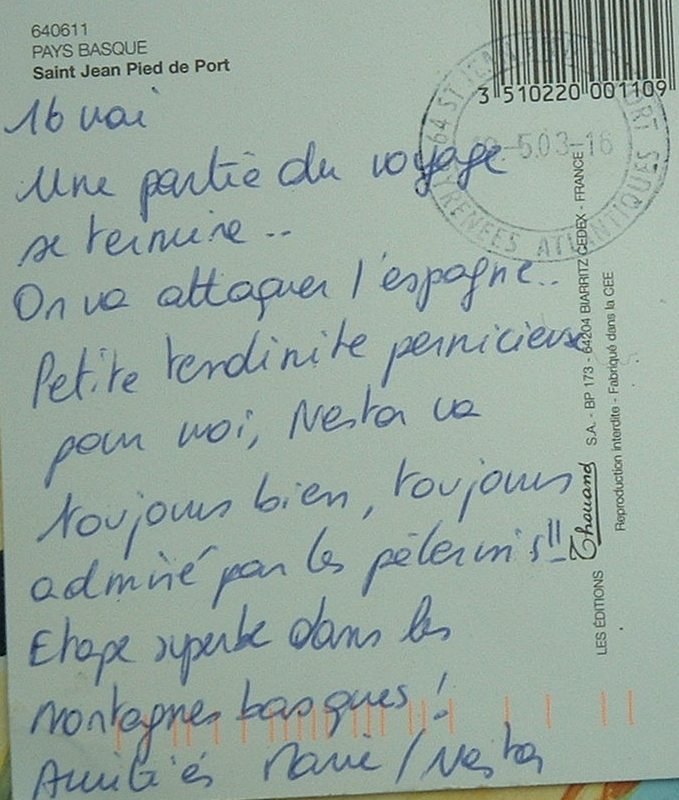 640611
PAYS BASQUE
Saint Jean Pied de Port
3 510220 001109
64 ST JEAN PIED PORT
-5.03-16
PYRENEES ATLANTIQUES
16 mai
Une partie du voyage
se termine..
On va attaquer l'espagne..
Petite tendinite pernicieuse
pour moi, Nestor va
toujours bien, toujours
admiré par les pélerins!!
Etape superbe dans les
Montagnes basques!
Amitiés Marie / Nestor
LES ÉDITIONS Thouand S.A. - BP 173 - 64204 BIARRITZ CEDEX - FRANCE
Reproduction interdite - Fabriqué dans la CEE